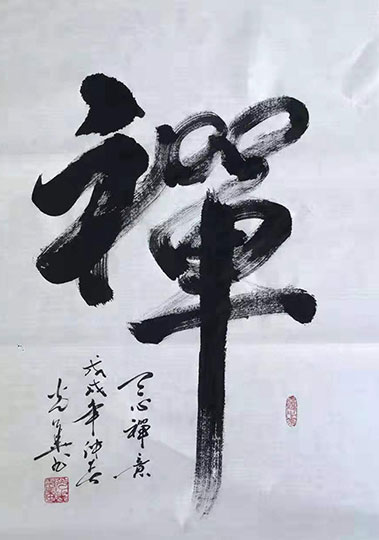 禪
天心禪意
戊戌年仲春
光